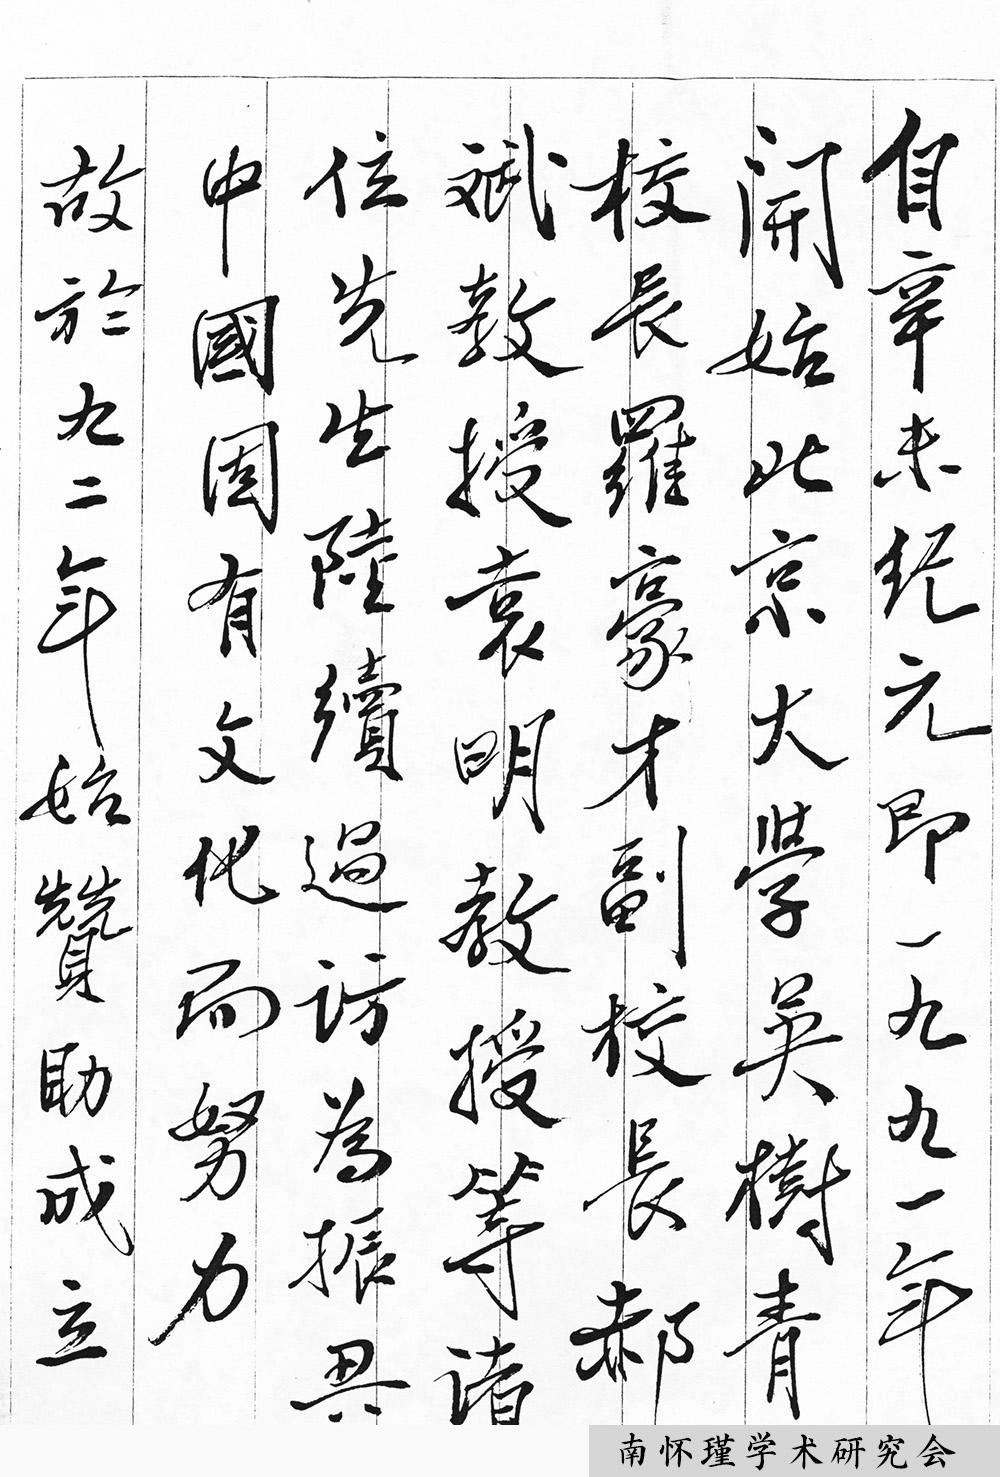 自辛未纪元即一九九一年
開始北京大學吴樹青
校長羅豪才副校長郝
斌教授袁明教授等諸
位先生陸續過訪為振興
中國固有文化而努力
故於九二年始贊助成立
南怀瑾学术研究会